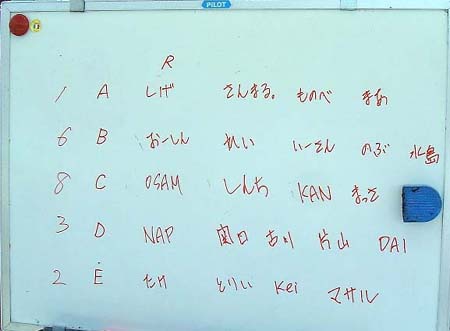 PILOT
R
1 A しげ さんまる。 ものべ まあ
6 B おーしん れい いーさん のぶ 水島
8 C OSAM しんち KAN まっさ
3 D NAP 関口 古川 片山 DAI
2 E たけ とりい Kei マサル